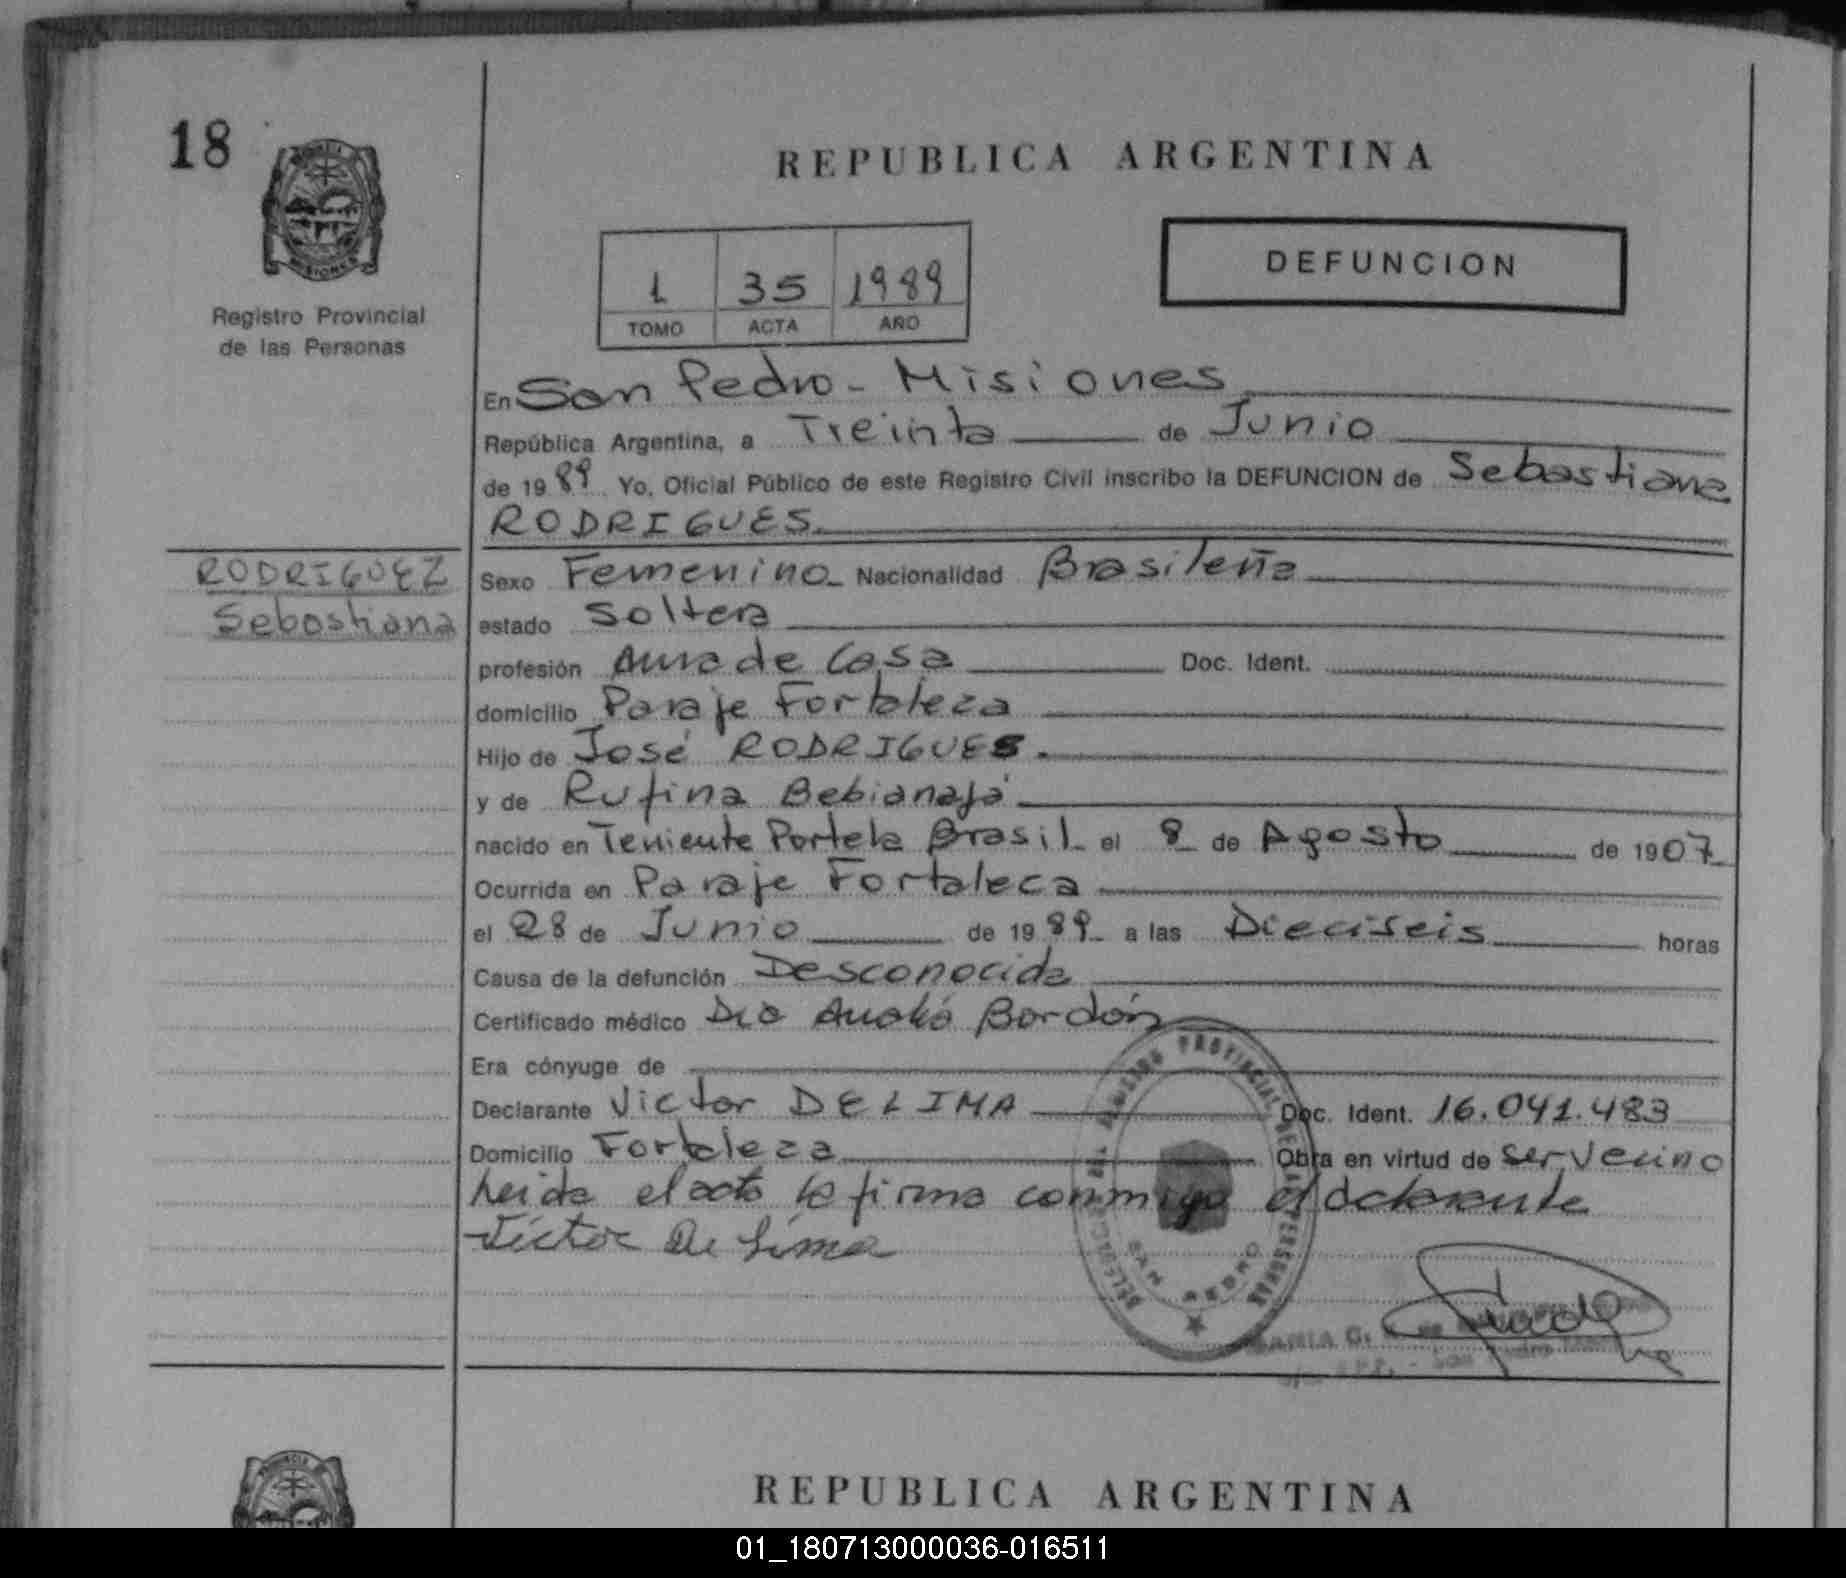 18
REPUBLICA ARGENTINA
DEFUNCION
1 35 1989
TOMO ACTA AÑO
Registro Provincial
de las Personas
En San Pedro - Misiones
República Argentina, a Treinta de Junio
de 1989 Yo, Oficial Público de este Registro Civil inscribo la DEFUNCION de Sebastiana
RODRIGUES
RODRIGUEZ
Sebastiana
Sexo Femenino Nacionalidad Brasileña
estado Soltera
profesión Ama de Casa Doc. Ident.
domicilio Paraje Fortaleza
Hijo de José RODRIGUES.
y de Rufina Bebianajá
nacido en Teniente Portela Brasil el 8 de Agosto de 1907
Ocurrida en Paraje Fortaleca
el 28 de Junio de 1989 a las Dieciseis horas
Causa de la defunción Desconocida
Certificado médico Dra Analia Bordón
Era cónyuge de
Declarante Victor DE LIMA Doc. Ident. 16.041.483
Domicilio Fortaleza Obra en virtud de ser vecino
Leida el acta la firma conmigo el declarante
Victor De Lima
REGISTRO PROVINCIAL DE LAS PERSONAS
SAN PEDRO
MARIA G.
San Pedro
PROVINCIA
MISIONES
PROVINCIA
REPUBLICA ARGENTINA
01_180713000036-016511